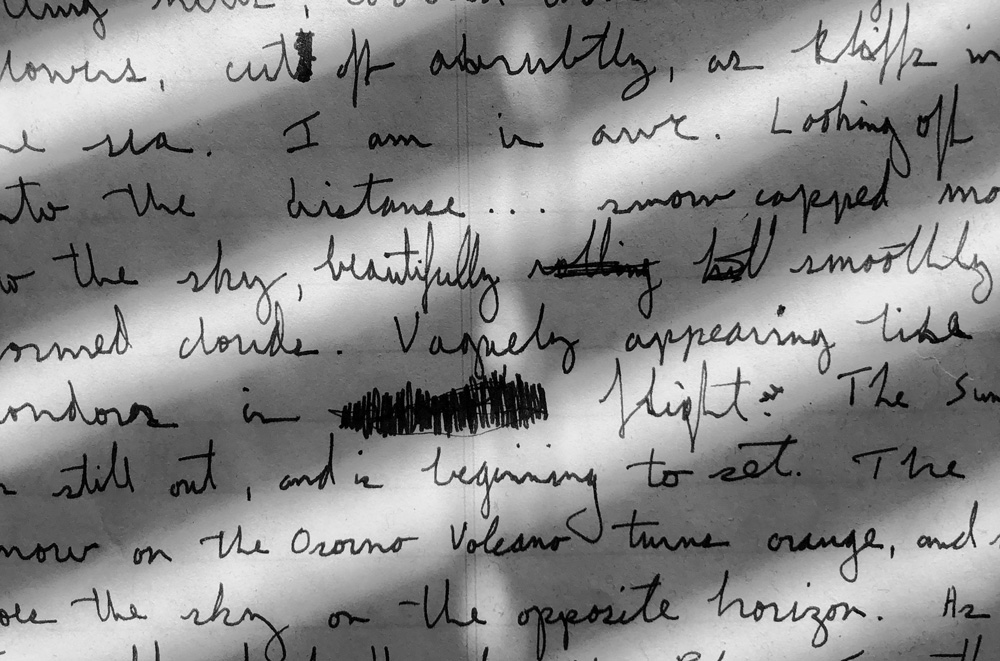 lowers, cut off abrubtly, as kliffs in
sea. I am in awe. Looking off
the distance... snow capped mo
the sky, beautifully rolling but smoothly
ormed clouds. Vaguely appearing like
ondors in flight. The Sun
still out, and is beginning to set. The
now on the Osorno Volcano turns orange, and
oes the sky on the opposite horizon. As